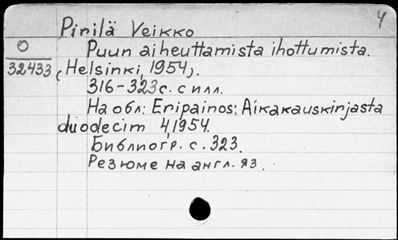 Pirilä Veikko
4
О
32433
Puun aiheuttamista ihottumista.
(Helsinki, 1954).
316-323с. с илл.
На обл: Eripainos: Aikakauskirjasta
duodecim 4,1954.
Библиогр. с. 323.
Резюме на англ. яз.